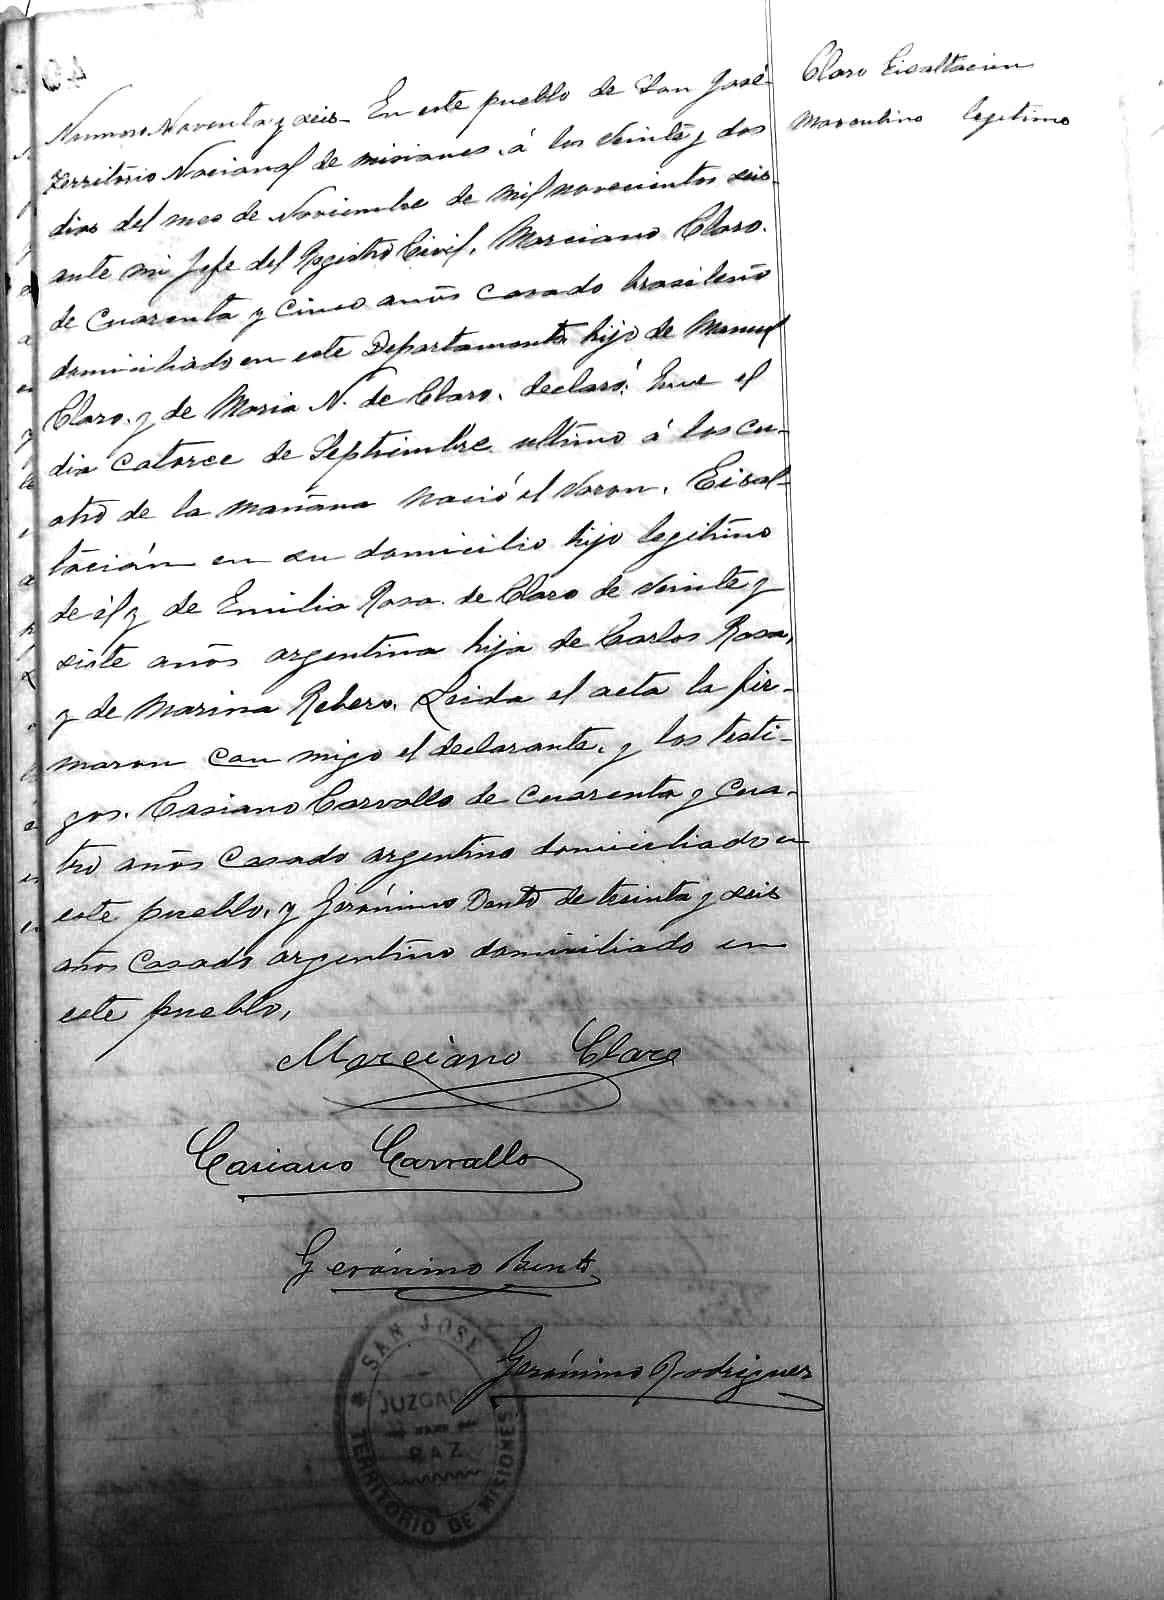 Claro Eisaltacion
Masculino legitimo
Numero Noventa y seis En este pueblo de San José
Territorio Nacional de misiones, á los Veinte y dos
dias del mes de Noviembre de mil novecientos seis
ante mi Jefe del Registro Civil, Marciano Claro.
de cuarenta y cinco años casado brasileño
domiciliado en este Departamento hijo de Manuel
Claro, y de Maria N. de Claro, declaró: Que el
dia catorce de Septiembre ultimo á las cu-
atro de la mañana nació el Varon, Eisal-
tación en su domicilio hijo legitimo
de él y de Emilia Rosa de Claro de Veinte y
siete años argentina hija de Carlos Rosa,
y de Marina Rebero, Leida el acta la fir-
maron con migo el declarante, y los testi-
gos. Casiano Carvallo de cuarenta y cua-
tro años casado argentino domiciliado en
este pueblo, y Gerónimo Bento de treinta y seis
años casado argentino domiciliado en
este pueblo,
Marciano Claro
Casiano Carvallo
Gerónimo Bento
Gerónimo Rodriguez
SAN JOSE
JUZGADO
DE PAZ
TERRITORIO DE MISIONES